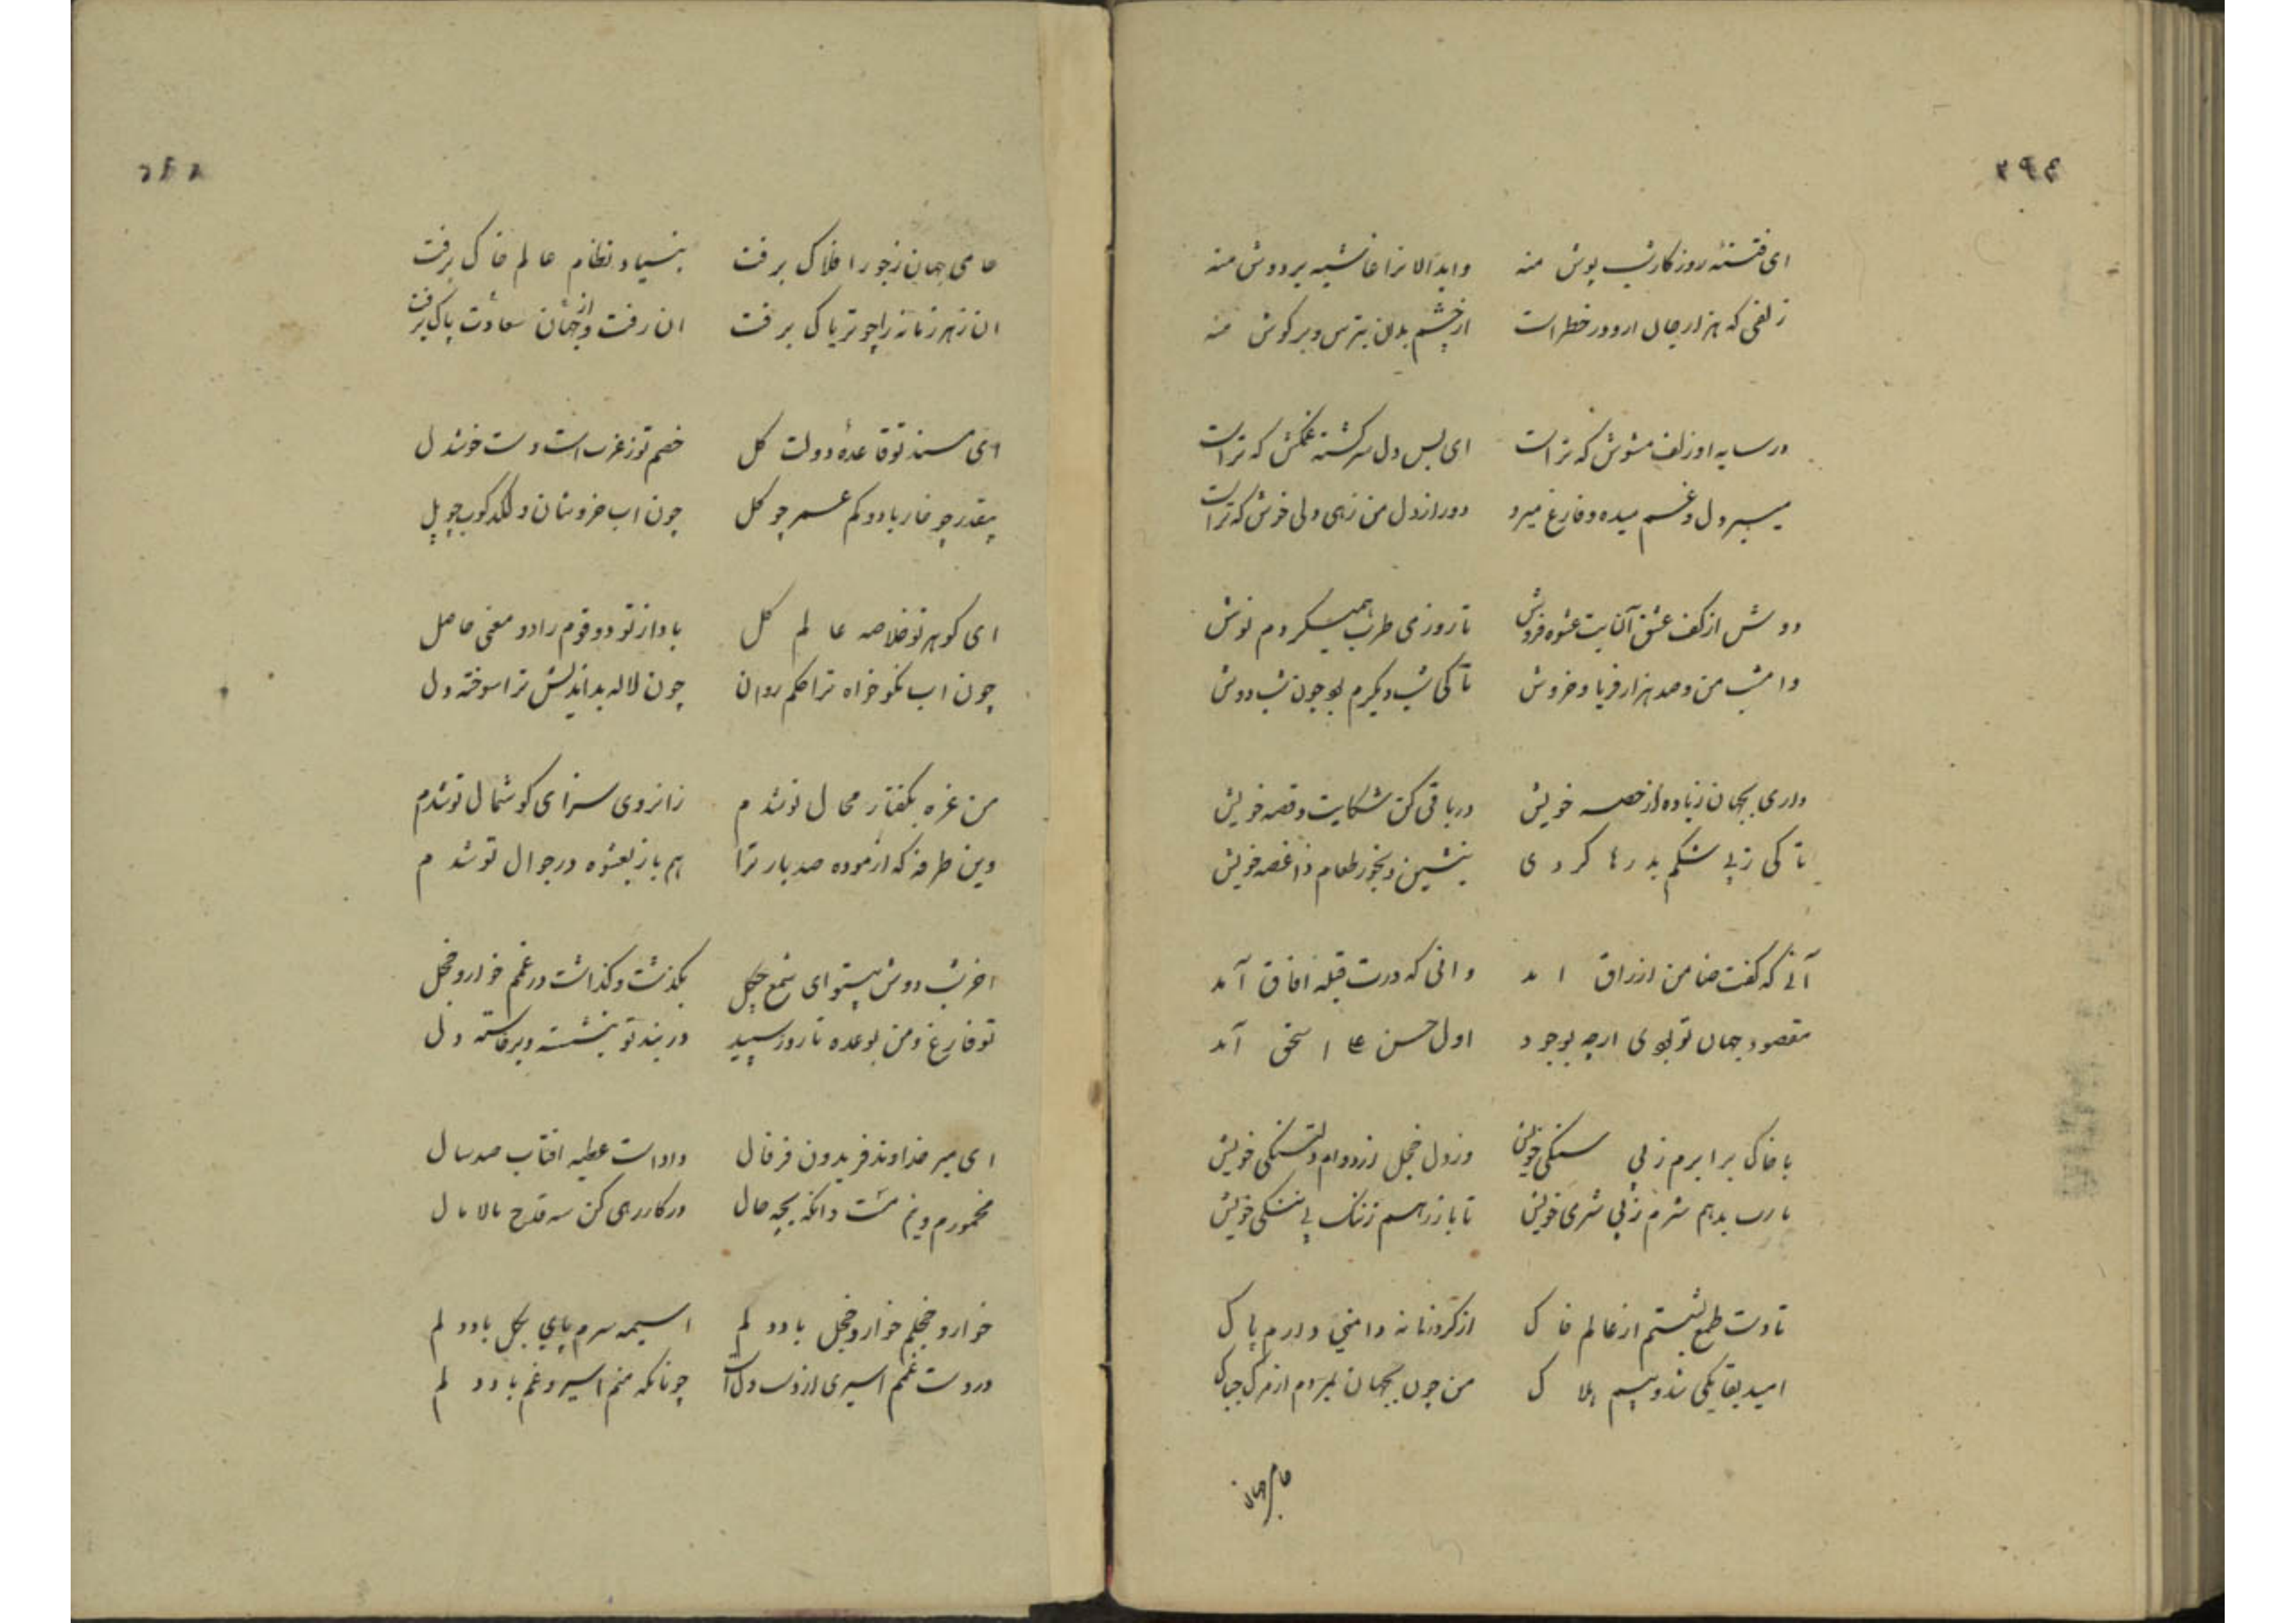 ای فتنه روزگار شب پوش منه وابدالانرا غاشیه بردوش منه
زلفی که هزار جان ازو در خطر است از چشم بدان بترس و بر گوش منه
در سایه اوزلف مشوش که تراست ای بس دل سرگشته غمکش که تراست
میبر دل و غم میده و فارغ میرو دور از دل من زهی دلی خوش که تراست
دوش از کف عشق آن بت عشوه فروش تا روز می طرب همیکردم نوش
وامشب من و صد هزار فریاد و خروش تا کی شب دیگرم بود چون شب دوش
داری بجهان زیاده از حصه خویش در باقی کن شکایت و قصه خویش
تا کی ز پی شکم بدرها گردی بنشین و بخور طعام ذا غصه خویش
آنی که کفت ضامن ارزاق امد وانی که درت قبله افاق آمد
مقصود جهان تو بودی ارچه بوجود اول حسن علی اسحق آمد
با خاک برابرم ز بی سنگی خویش وز دل خجل از دوام دلتنگی خویش
یارب بدهم شرم ز بی شرمی خویش تا باز رهم ز ننگ بی ننگی خویش
تا دست طمع بشستم از عالم خاک از گرد زمانه دامنی دارم پاک
امید بقا یکی شد و بیم هلاک من چون بجهان نمیرم از مرگ چه باک
حامی جهان
حامی جهان ز جور افلاک برفت بنیاد نظام عالم خاک برفت
ان زهر زمانه را چو تریاک برفت ان رفت و از جهان سعادت پاک برفت
ای مسند تو قاعده دولت کل خصم تو ز غر است دست خوشدل
بیقدر چو خار باد و کم عمر چو گل چون اب خروشان و لگدکوب چو پل
ای گوهر تو خلاصه عالم گل باد از تو دو قوم را دو معنی حاصل
چون اب نکوخواه ترا حکم روان چون لاله بداندیش ترا سوخته دل
من غره بگفتار محال تو شدم زانروی سزای گوشمال تو شدم
وین طرفه که ازموده صد بار ترا هم باز بعشوه در جوال تو شدم
اخر شب دوش بیتو ای شمع چگل بگذشت و گذاشت در غمم خوار و خجل
تو فارغ و من بوعده تا روز سپید در بند تو بنشسته و برخاسته دل
ای میر خداوند فریدون فر فال داداست عطیه افتاب صد سال
مخمورم و نیم مست دانکه بچه حال در کار رهی کن سه قدح مالامال
خوار و خجلم خوار و خجل باد دلم اسیمه سرم پای بگل باد دلم
در دست غمم اسیری از دست دل است چونانکه منم اسیر و غم باد دلم